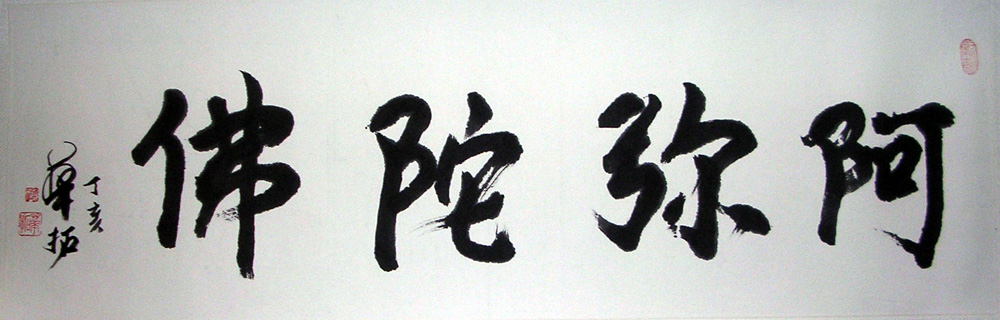 阿弥陀佛
丁亥
华拓